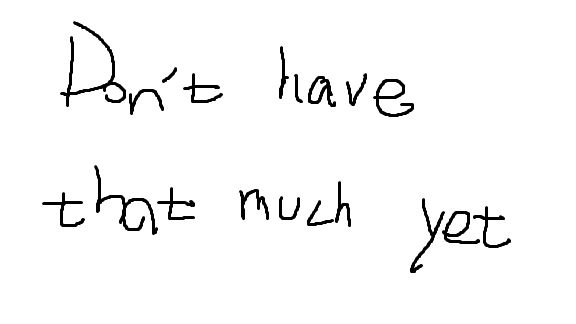 Don't have
that much yet